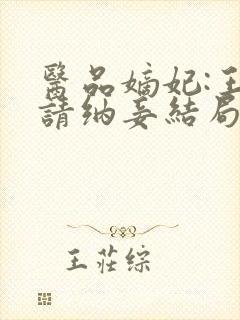 醫品嫡妃:王
請納妾結局
王莊綜